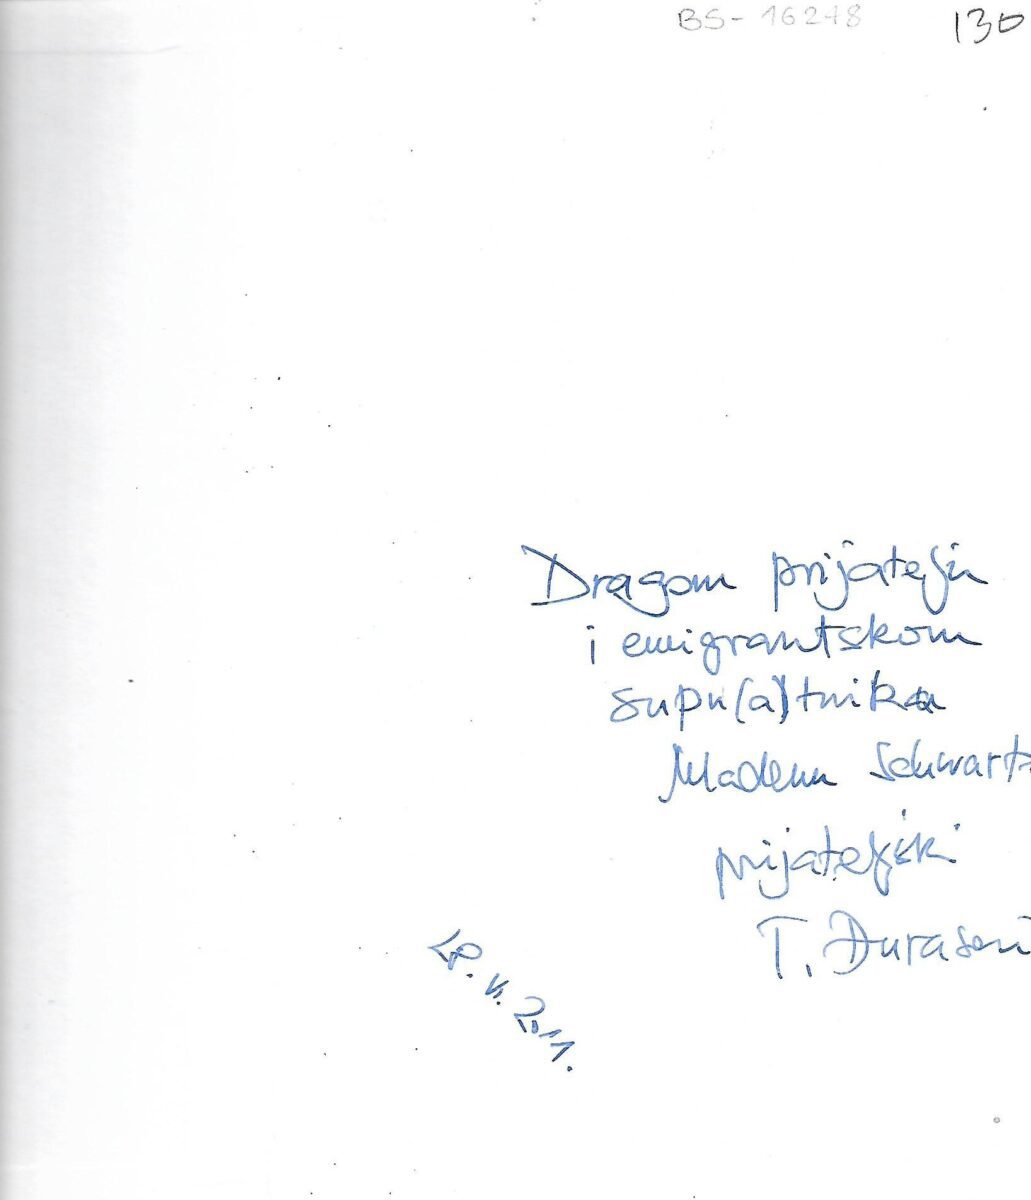 BS-16248
130
Dragom prijatelju
i emigrantskom
supu(a)tniku
Mladenu Schwartz
prijateljski
T. Đurasen
V. 2011.